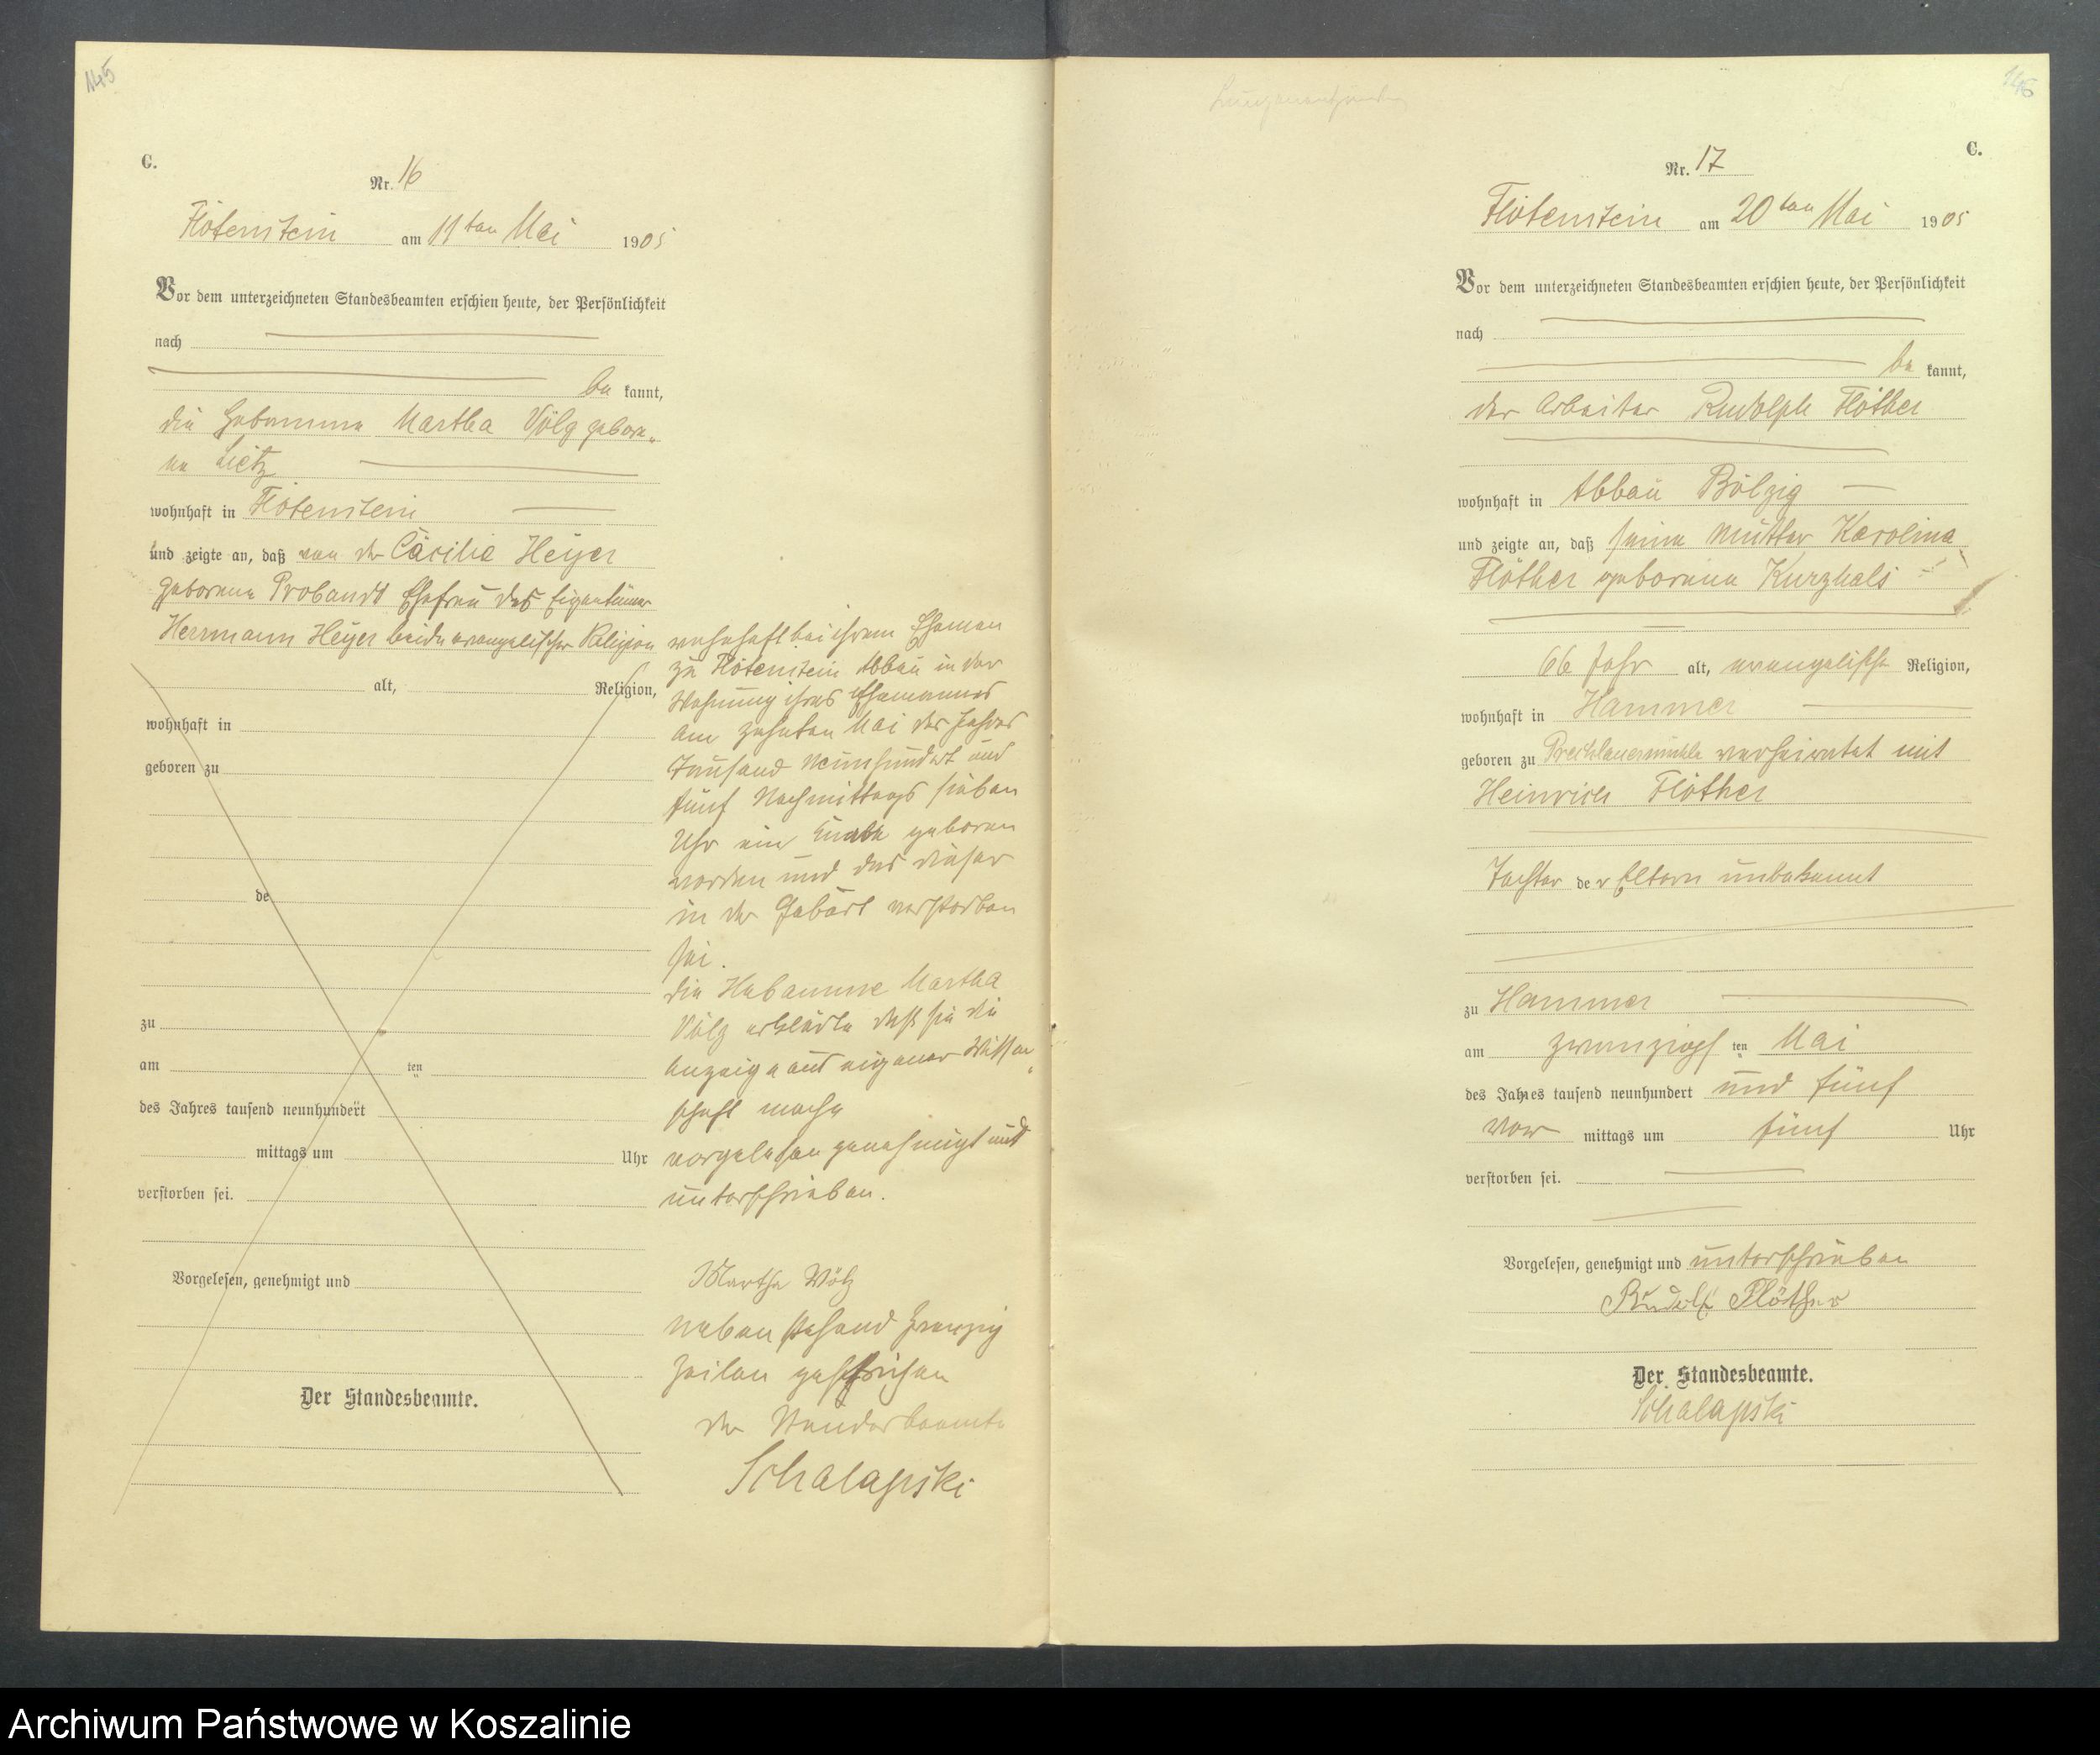 145
C.
Nr. 16
Flötenstein am 11ten Mai 1905
Vor dem unterzeichneten Standesbeamten erschien heute, der Persönlichkeit
nach
be kannt,
die Hebamme Martha Völz gebore„
ne Lietz
wohnhaft in Flötenstein
und zeigte an, daß von der Cäcilie Heyer
geborene Probandt Ehefrau des Eigentümer
Herrmann Heyer beide evangelischer Religion
alt, Religion,
wohnhaft in
geboren zu
de
zu
am ten
des Jahres tausend neunhundert
mittags um Uhr
verstorben sei.
Vorgelesen, genehmigt und
Der Standesbeamte.
wohnhaft bei ihrem Ehemann
zu Flötenstein Abbau in der
Wohnung ihres Ehemannes
am zehnten Mai des Jahres
Tausend Neunhundert und
fünf Nachmittags sieben
Uhr ein Knabe geboren
worden und das dieser
in der Geburt verstorben
sei.
die Hebamme Martha
Völz erklärte daß sie die
Anzeige aus eigener Wissen„
schaft mache
vorgelesen genehmigt und
unterschrieben.
Martha Völz
Neben stehend Zwanzig
Zeilen gestrichen
der Standesbeamte
Schalapski
146
Lungenentzündung
C.
Nr. 17
Flötenstein am 20ten Mai 1905
Vor dem unterzeichneten Standesbeamten erschien heute, der Persönlichkeit
nach
be kannt,
der Arbeiter Rudolph Flöther
wohnhaft in Abbau Bölzig
und zeigte an, daß seine Mutter Karolina
Flöther geborene Kurzhals
66 Jahr alt, evangelisch Religion,
wohnhaft in Hammer
geboren zu Prechlauermühle verheiratet mit
Heinrich Flöther
Tochter de r Eltern unbekannt
zu Hammer
am zwanzigst ten Mai
des Jahres tausend neunhundert und fünf
Vor mittags um fünf Uhr
verstorben sei.
Vorgelesen, genehmigt und unterschrieben
Rudolf Flöther
Der Standesbeamte.
Schalapski
Archiwum Państwowe w Koszalinie